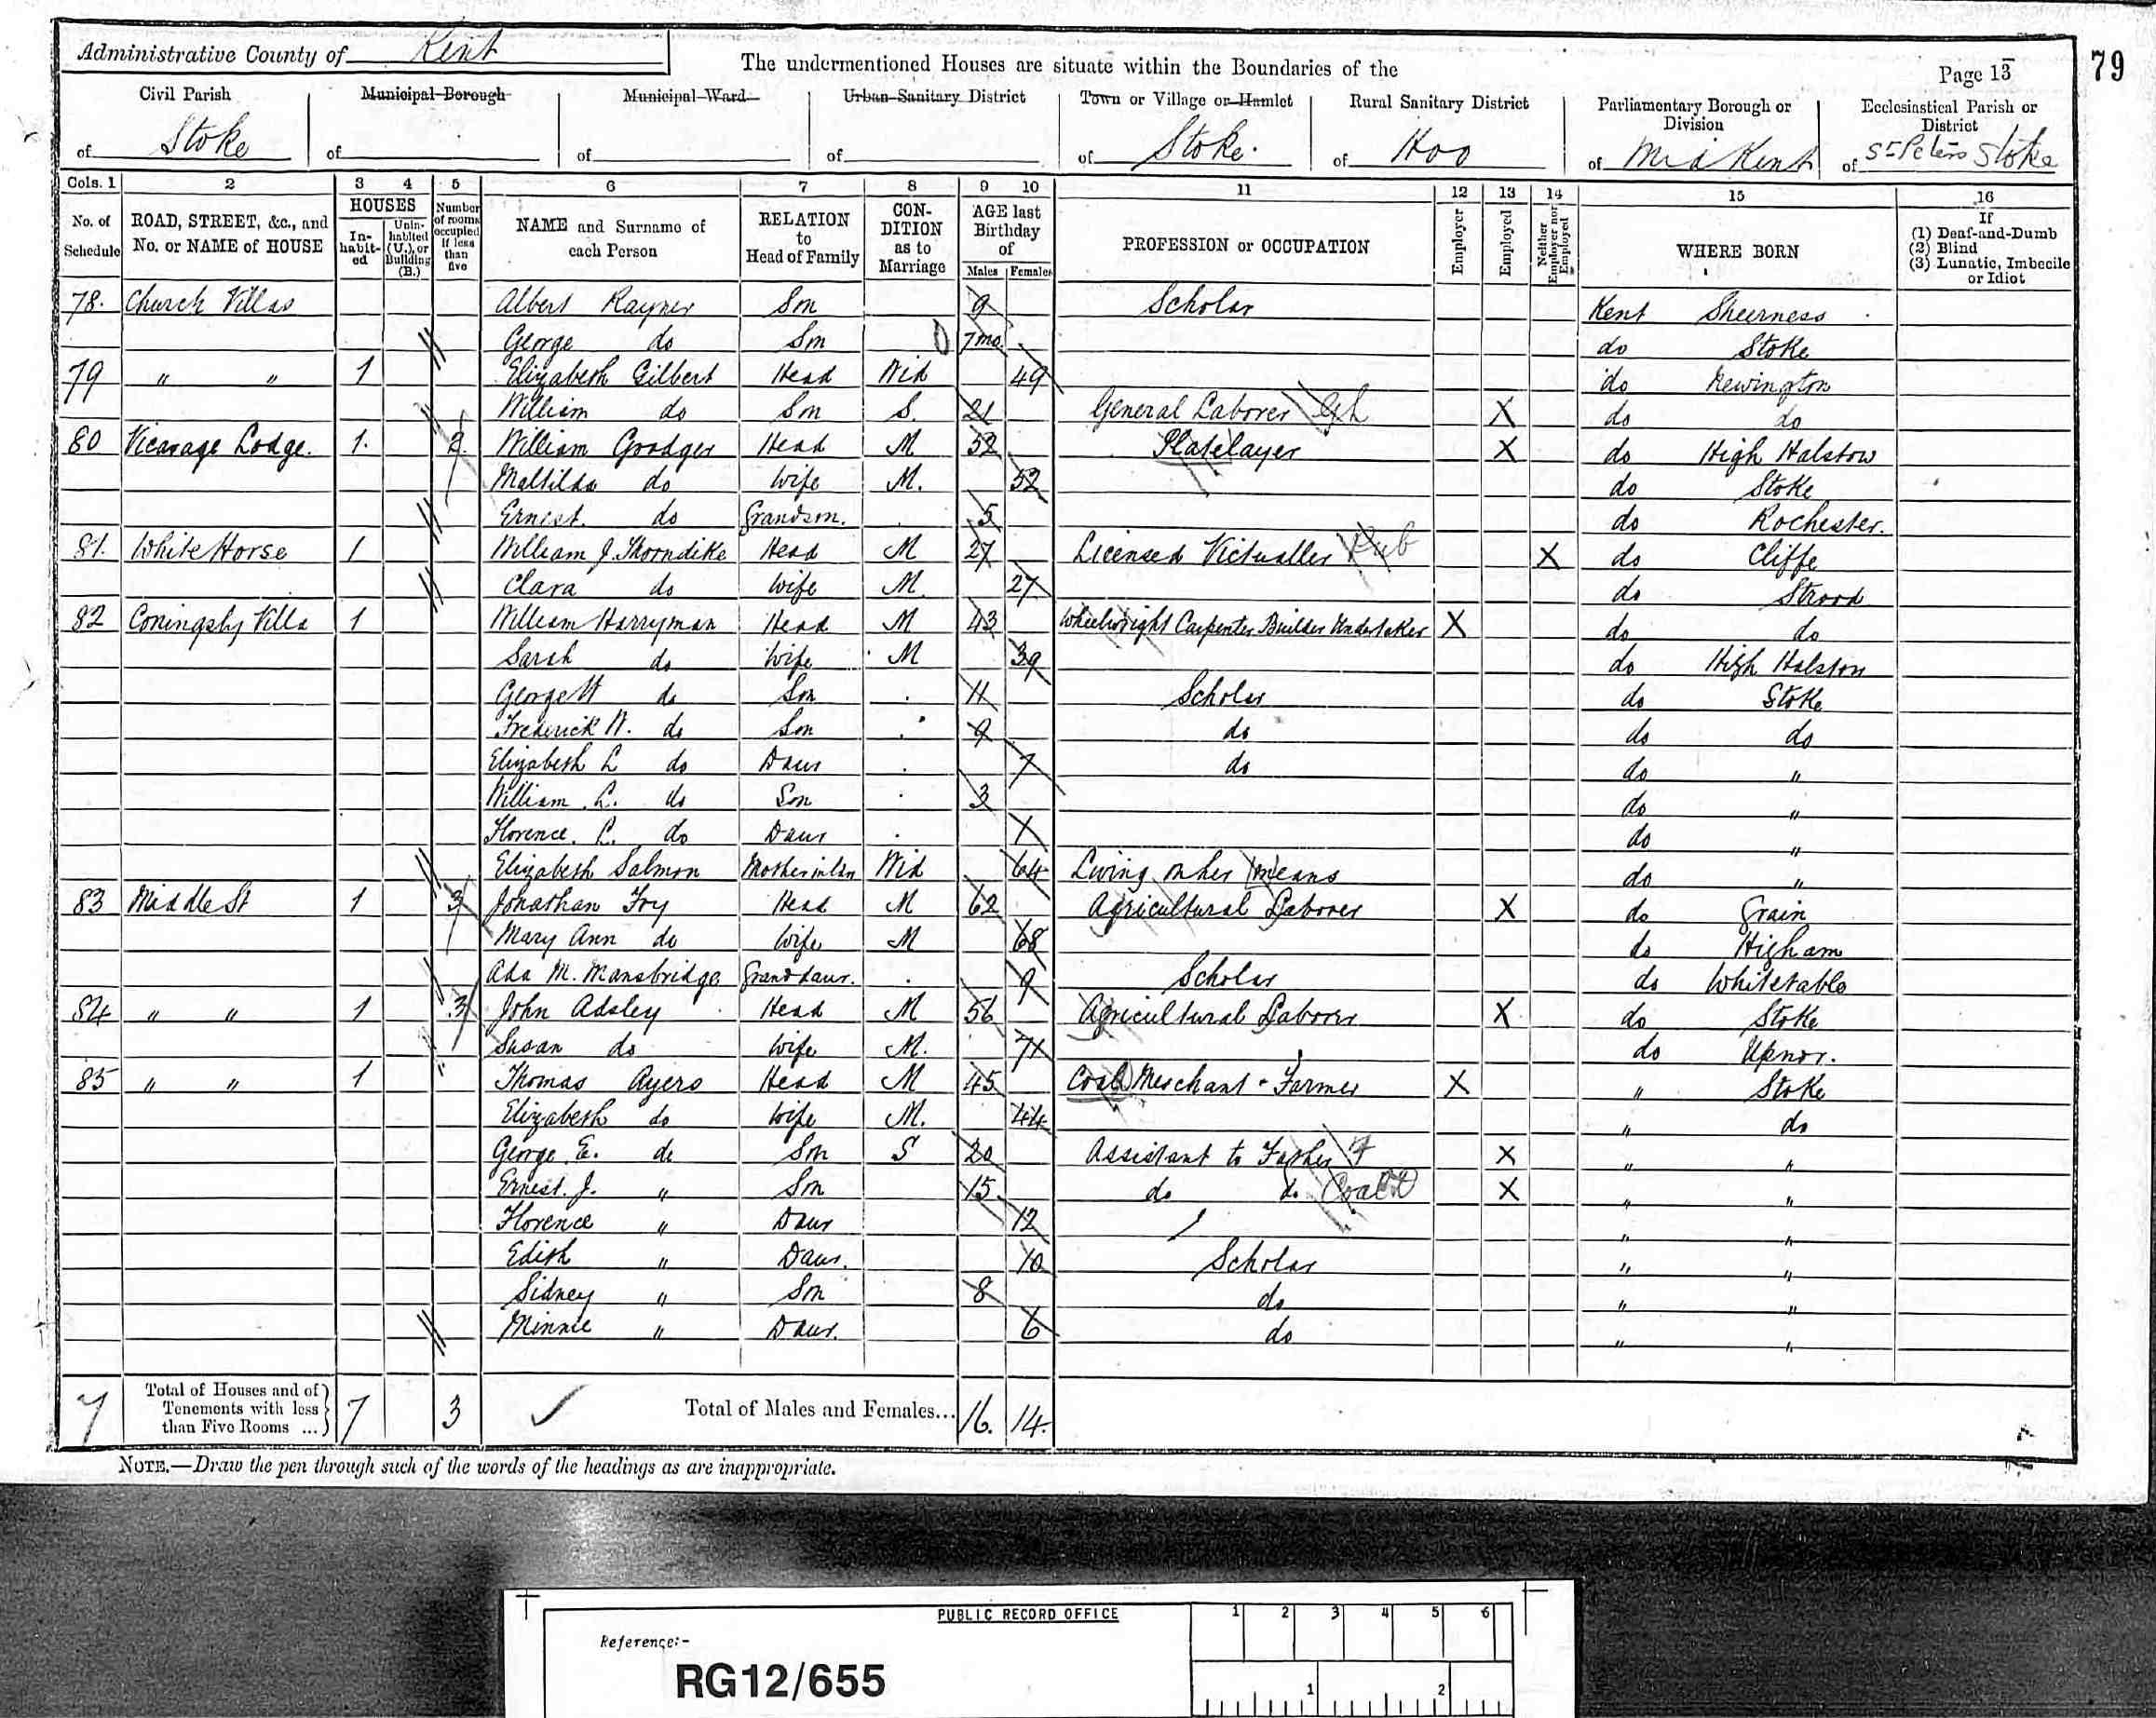 Administrative County of Kent
The undermentioned Houses are situate within the Boundaries of the
Page 13
79
Civil Parish
Municipal Borough
Municipal Ward
Urban Sanitary District
Town or Village or Hamlet
Rural Sanitary District
Parliamentary Borough or Division
Ecclesiastical Parish or District
of Stoke
of
of
of
of Stoke.
of Hoo
of Mid Kent
of St Peters Stoke
Cols. 1 2 3 4 5 6 7 8 9 10 11 12 13 14 15 16
No. of Schedule
ROAD, STREET, &c., and No. or NAME of HOUSE
HOUSES
In-habit-ed
Unin-habited (U.), or Building (B.)
Number of rooms occupied if less than five
NAME and Surname of each Person
RELATION to Head of Family
CON-DITION as to Marriage
AGE last Birthday of
Males Females
PROFESSION or OCCUPATION
Employer
Employed
Neither Employer nor Employed
WHERE BORN
If
(1) Deaf-and-Dumb
(2) Blind
(3) Lunatic, Imbecile or Idiot
78. Church Villas Albert Rayner Son 9 Scholar Kent Sheerness
George do Son 7mo do Stoke
79 " " 1 Elizabeth Gilbert Head Wid 49 do Newington
William do Son S. 21 General Laborer G L X do do
80 Vicarage Lodge. 1. 2 William Goodger Head M 52 Platelayer X do High Halstow
Maltilda do Wife M. 52 do Stoke
Ernest. do Grandson. 5 do Rochester.
81. White Horse 1 William J. Thorndike Head M 27 Licensed Victualler Pub X do Cliffe
Clara do Wife M 27 do Strood
82 Coningsby Villa 1 William Harryman Head M 43 Wheelwright Carpenter Builder Undertaker X do do
Sarah do Wife M 39 do High Halston
George W do Son 11 Scholar do Stoke
Frederick W. do Son 9 do do do
Elizabeth L do Daur 7 do do "
William L. do Son 3 do "
Florence. L. do Daur 1 do "
Elizabeth Salmon Mother in law Wid 64 Living on her means do "
83 Middle St 1 3 Jonathan Fry Head M 62 Agricultural Laborer X do Grain
Mary Ann do Wife M 68 do Higham
Ada M. Mansbridge Grand daur. 9 Scholar do Whitstable
84 " " 1 3 John Adsley Head M 56 Agricultural Laborer X do Stoke
Susan do Wife M. 71 do Upnor.
85 " " 1 Thomas Ayers Head M 45 Coal Merchant + Farmer X " Stoke
Elizabeth do Wife M. 44 " do
George E. do Son S 20 Assistant to Father F X " "
Ernest. J. " Son 15 do do Coal X " "
Florence " Daur 12 " "
Edith " Daur. 10 Scholar " "
Sidney " Son 8 do " "
Minnie " Daur. 6 do " "
7 Total of Houses and of Tenements with less than Five Rooms ... 7 3 Total of Males and Females... 16. 14.
NOTE.—Draw the pen through such of the words of the headings as are inappropriate.
PUBLIC RECORD OFFICE
1 2 3 4 5 6
Reference:-
RG12/655
1 2